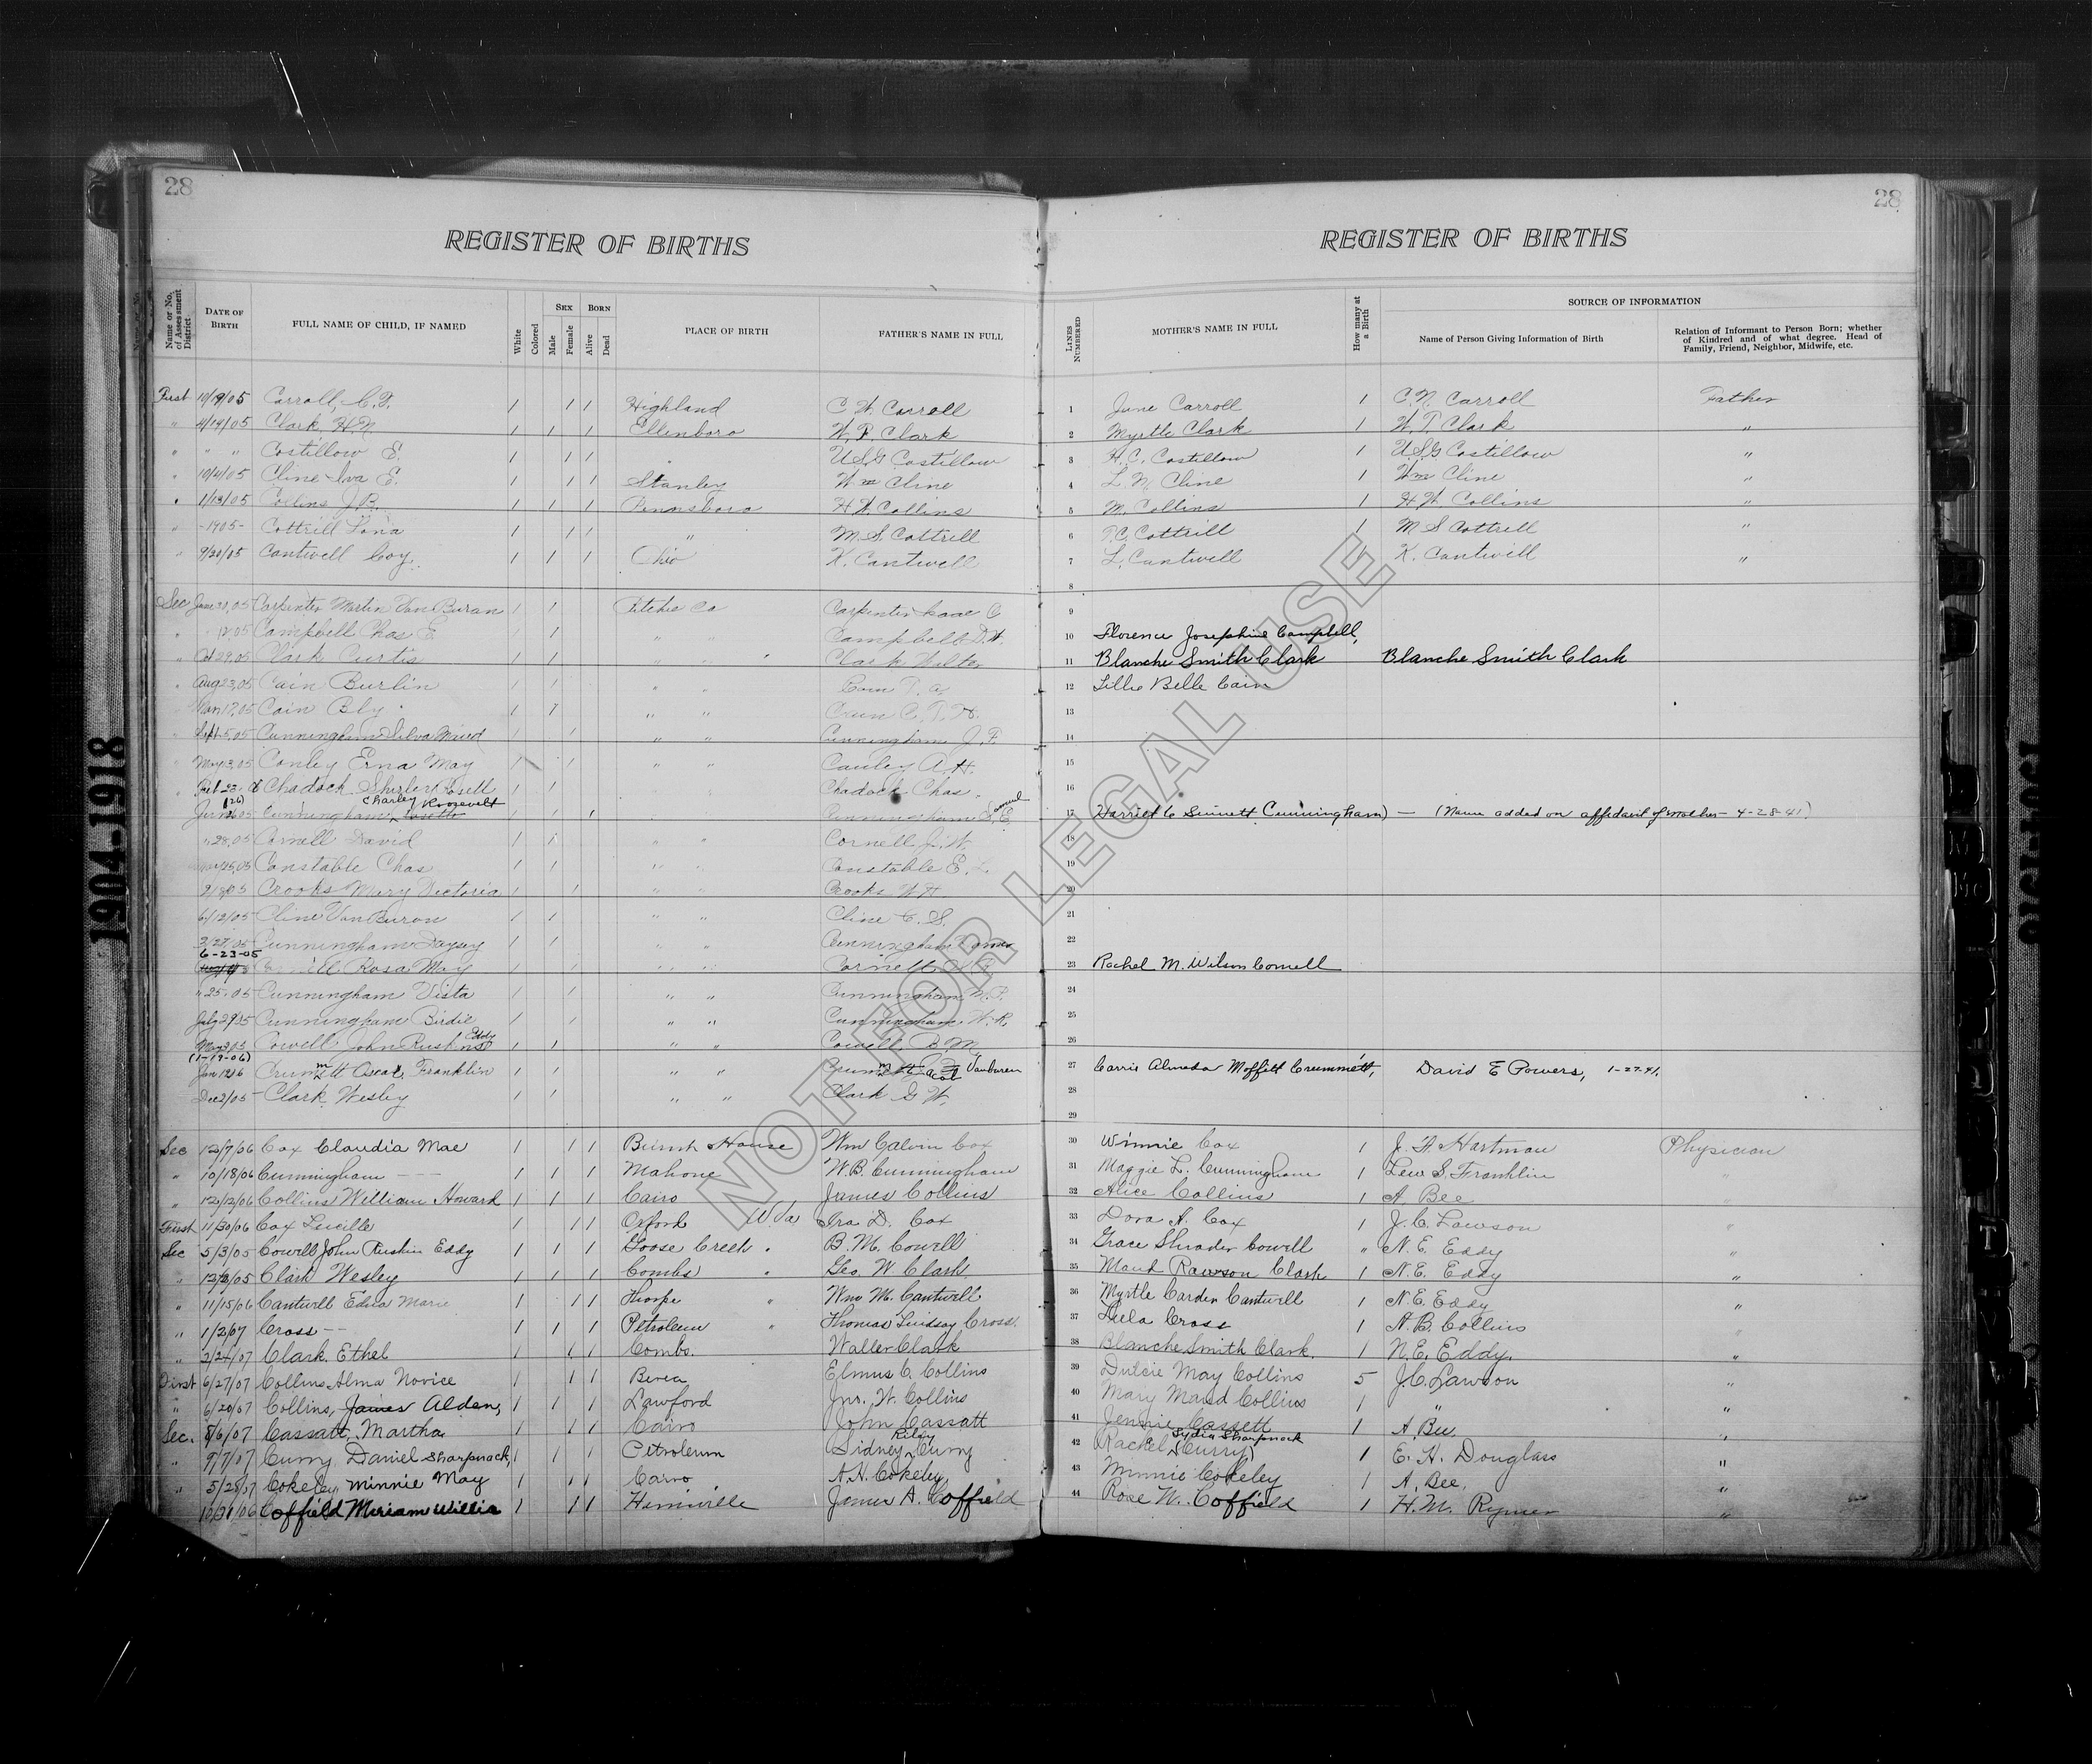 28
28
REGISTER OF BIRTHS
REGISTER OF BIRTHS
Name or No. of Assessment District
DATE OF BIRTH
FULL NAME OF CHILD, IF NAMED
White
Colored
SEX
Male
Female
BORN
Alive
Dead
PLACE OF BIRTH
FATHER'S NAME IN FULL
LINES NUMBERED
MOTHER'S NAME IN FULL
How many at a Birth
SOURCE OF INFORMATION
Name of Person Giving Information of Birth
Relation of Informant to Person Born; whether of Kindred and of what degree. Head of Family, Friend, Neighbor, Midwife, etc.
First 10/19/05 Carroll, C. F. 1 1 1 Highland C. W. Carroll 1 June Carroll 1 C. N. Carroll Father
" 4/14/05 Clark H. N. 1 1 1 Ellenboro W. P. Clark 2 Myrtle Clark 1 W. P. Clark "
" " " Costillow E. 1 1 1 U.S.G Costillow 3 H. C. Costillow 1 U.S.G Costillow "
" 10/4/05 Cline Iva E. 1 1 1 Stanley Wm Cline 4 L. N. Cline 1 Wm Cline "
" 1/13/05 Collins J. B. 1 1 1 Pennsboro H W. Collins 5 M. Collins 1 H. W. Collins "
" -1905- Cottrill Lona 1 1 1 " M. S. Cottrill 6 Cottrill 1 M S Cottrell "
" 9/20/05 Cantwell Coy 1 1 1 Ohio K. Cantwell 7 L. Cantwell K. Cantwell "
8
Sec 05 Carpenter Martin Van Buran 1 1 Ritchie Co Carpenter Isaac C 9
" 05 Campbell Chas E. 1 1 " " Campbell D. W. 10 Florence Josephine Campbell,
" Oct 29, 05 Clark Curtis 1 1 " " Clark Walter 11 Blanche Smith Clark Blanche Smith Clark
" Aug 23, 05 Cain Burlin 1 1 " " 12 Lillie Belle Cain
" Mar 17, 05 Cain Bly 1 1 " " 13
" Sept 5, 05 Cunningham Silva Maud 1 1 " " Cunningham J. F. 14
" May 13, 05 Conley Erna May 1 1 " " Conley A. H. 15
" Feb 23, 05 Chadock Shirley Rosell 1 1 Chadock Chas. 16
(26) Charley Roosevelt
05 Cunningham 1 1 1 Cunningham S. E. Samuel 17 Harriet C Sinnett Cunningham) — (Name added on affidavit of mother - 4-28-41)
" 28, 05 Cornell David 1 1 " " Cornell J. W. 18
25, 05 Constable Chas 1 1 " " Constable E. L. 19
9/8/05 Crooks Mary Victoria 1 1 " " Crooks W H 20
6/12/05 Cline Van Buron 1 1 " " Cline C. S. 21
3/27/05 Cunningham Daysey 1 1 " " Cunningham 22
6-23-05
Rosa May 1 1 " " Cornell 23 Rachel M. Wilson Cornell
" 25-05 Cunningham Vista 1 1 " " Cunningham M. P. 24
July 29 05 Cunningham Birdie 1 1 " " Cunningham W. R. 25
05 Cowell John Ruskin Eddy 1 1 " " Cowell B. M. 26
(1-19-06)
Jan 12 06 Crummett Oscar Franklin 1 1 " " Crummett Vanburen 27 Carrie Almeda Moffitt Crummett, David E Powers, 1-27-41.
Dec 2/05 Clark Wesley 1 1 " " Clark G W. 28
29
Sec 12/7/06 Cox Claudia Mae 1 1 1 Burnt House Wm Calvin Cox 30 Winnie Cox 1 J. H. Hartman Physician
" 10/18/06 Cunningham - - - 1 1 1 Mahone W. B. Cunningham 31 Maggie L. Cunningham 1 Lew S. Franklin "
" 12/12/06 Collins William Howard 1 1 1 Cairo James Collins 32 Alice Collins 1 A. Bee "
First 11/30/06 Cox Lucille 1 1 1 Oxford W Va Ira D. Cox 33 Dora A. Cox 1 J. C. Lawson "
Sec 5/3/05 Cowell John Ruskin Eddy 1 1 1 Goose Creek " B. M. Cowell 34 Grace Shrader Cowell " N. E. Eddy "
" 12/2/05 Clark Wesley 1 1 1 Combs " Geo. W Clark 35 Maud Rawson Clark 1 N. E. Eddy "
" 11/15/06 Cantwell Edna Marie 1 1 1 Thorpe " Wm M. Cantwell 36 Myrtle Carder Cantwell 1 N. E. Eddy "
" 1/2/07 Cross - - 1 1 1 Petroleum " Thomas Lindsay Cross. 37 Lula Cross 1 A. B. Collins "
" 2/24/07 Clark Ethel 1 1 1 Combs. Walter Clark 38 Blanche Smith Clark. 1 N. E. Eddy. "
First 6/27/07 Collins Alma Novice 1 1 1 Berea Elmus C. Collins 39 Dulcie May Collins 5 J. C. Lawson "
" 6/20/07 Collins, James Alden, 1 1 1 Lawford Jnr. W. Collins 40 Mary Maud Collins 1 " "
Sec. 8/6/07 Cassatt, Martha 1 1 1 Cairo John Cassatt 41 Jennie Cassett 1 A Bee "
" 9/7/07 Curry Daniel Sharpnack, 1 1 1 Petroleum Sidney Riley Curry 42 Rachel Lydia Sharpnack (Curry) 1 E. H. Douglass "
" 5/28/07 Cokeley Minnie May 1 1 1 Cairo A. H. Cokeley 43 Minnie Cokeley 1 A. Bee. "
10/31/06 Coffield Miriam Willia 1 1 1 Harrisville James A. Coffield 44 Rose W. Coffield 1 H. M. Rymer "
NOT FOR LEGAL USE
1904-1918